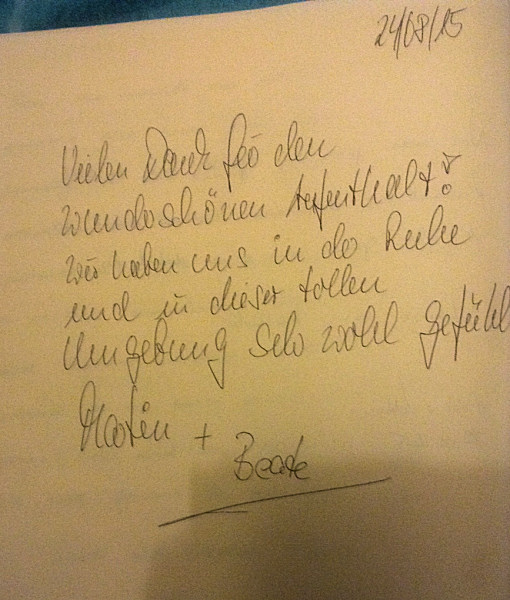 24/08/15
Vielen Dank für den
wunderschönen Aufenthalt!
Wir haben uns in der Ruhe
und in dieser tollen
Umgebung sehr wohl gefühl
Martin +
Beate